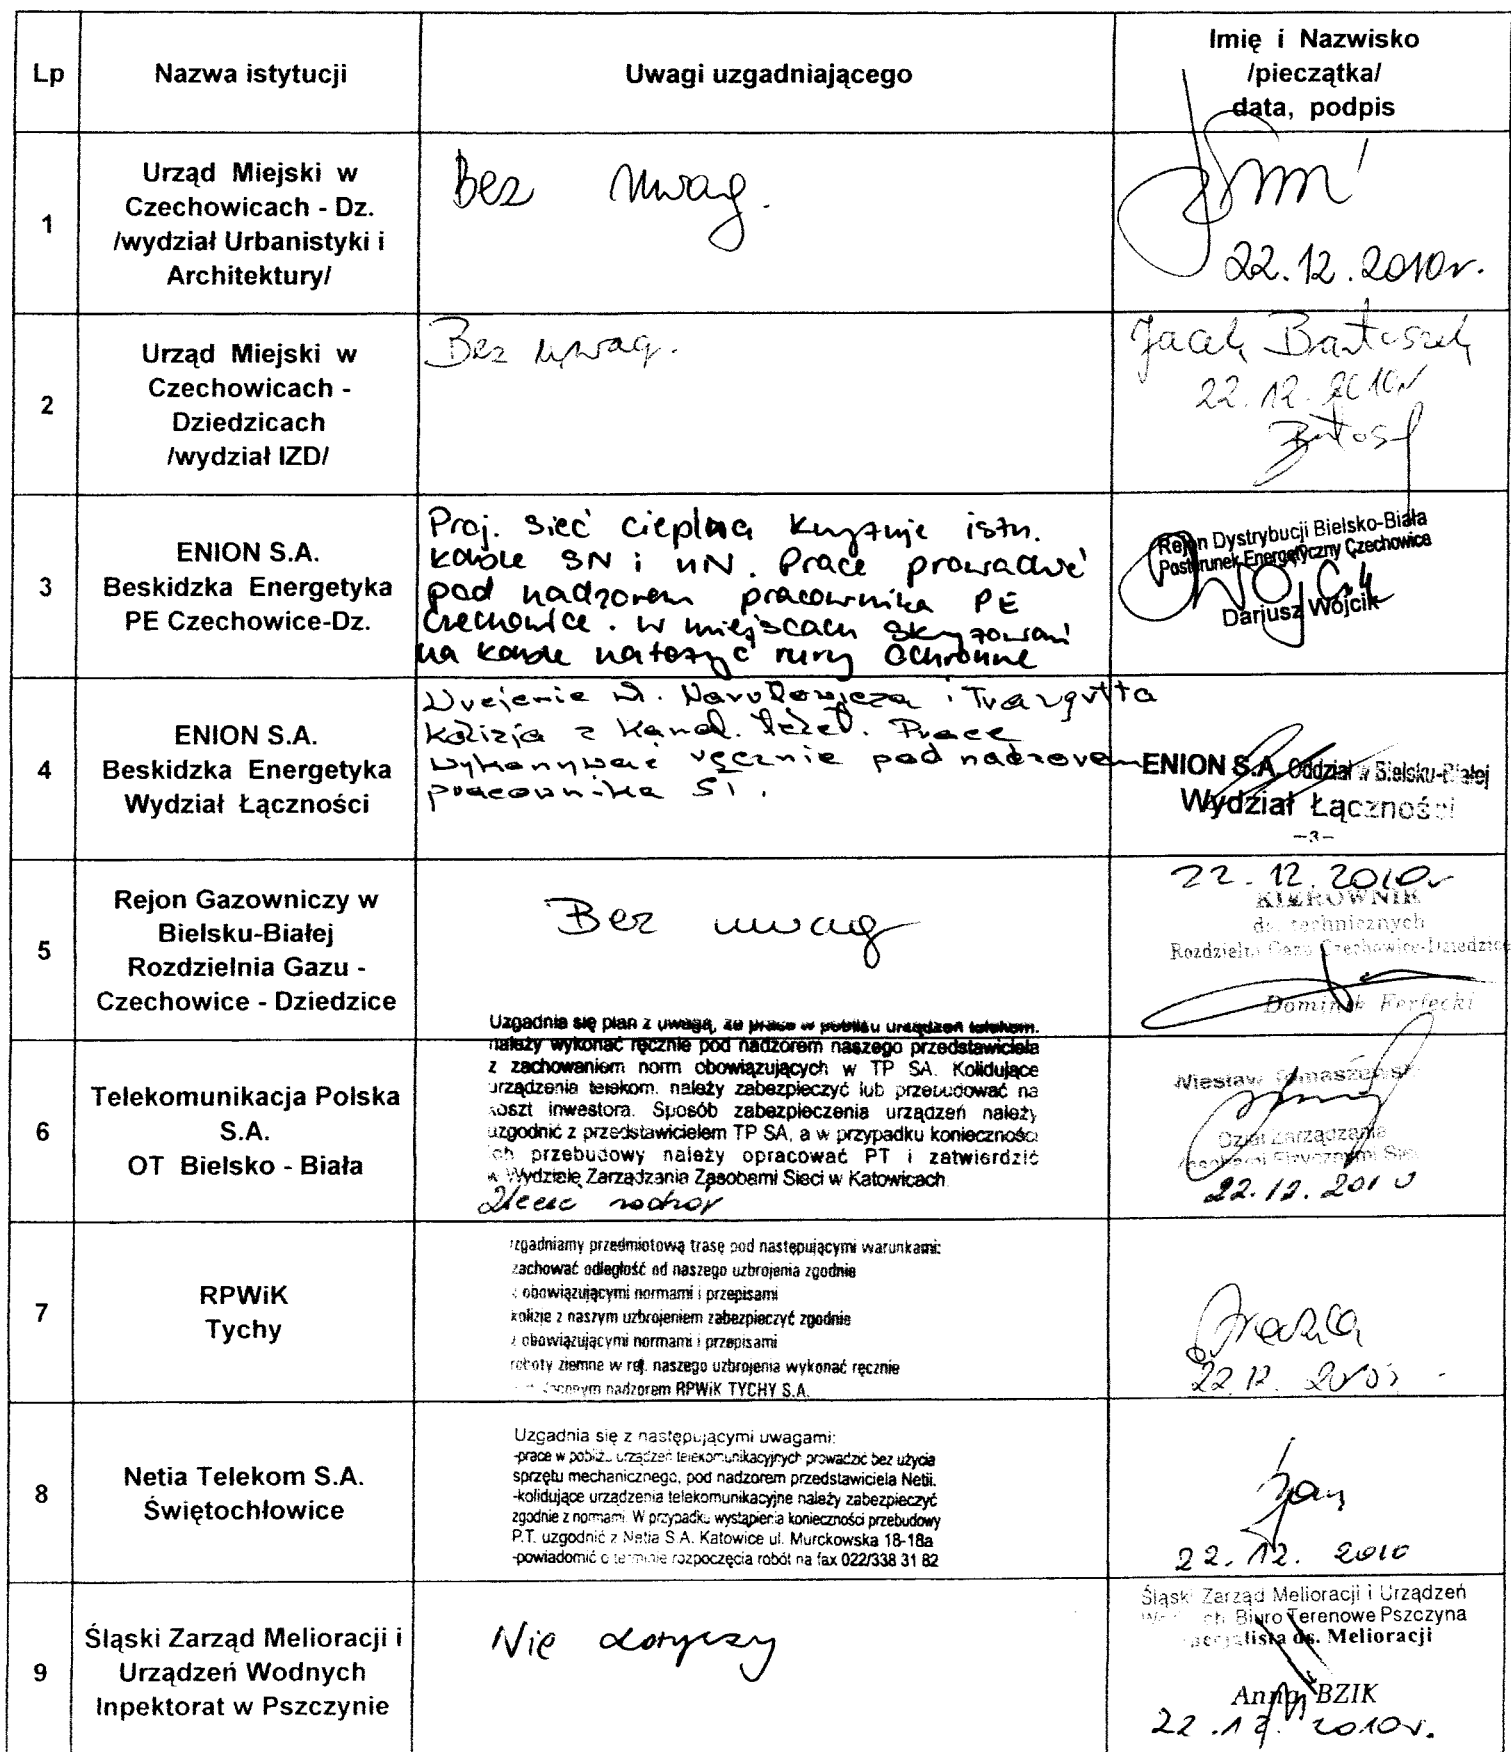 Lp
Nazwa istytucji
Uwagi uzgadniającego
Imię i Nazwisko
/pieczątka/
data, podpis
1
Urząd Miejski w
Czechowicach - Dz.
/wydział Urbanistyki i
Architektury/
Bez uwag.
22.12.2010r.
2
Urząd Miejski w
Czechowicach -
Dziedzicach
/wydział IZD/
Bez uwag.
Jacek Bartoszek
22.12.2010r
3
ENION S.A.
Beskidzka Energetyka
PE Czechowice-Dz.
Proj. sieć cieplna krzyżuje istn.
kable SN i nN. Prace prowadzić
pod nadzorem pracownika PE
Czechowice. W miejscach skrzyżowań
na kable nałożyć rury ochronne
Rejon Dystrybucji Bielsko-Biała
Posterunek Energetyczny Czechowice
Dariusz Wójcik
4
ENION S.A.
Beskidzka Energetyka
Wydział Łączności
W rejonie ul. Narutowicza i Traugutta
kolizja z kanal. telet. Prace
wykonywać ręcznie pod nadzorem
pracownika ST.
ENION S.A. Oddział w Bielsku-Białej
Wydział Łączności
-3-
5
Rejon Gazowniczy w
Bielsku-Białej
Rozdzielnia Gazu -
Czechowice - Dziedzice
Bez uwag
22.12.2010r
KIEROWNIK
ds. technicznych
Rozdzielni Gazu Czechowice-Dziedzice
Dominik Ferfecki
6
Telekomunikacja Polska
S.A.
OT Bielsko - Biała
Uzgadnia się plan z uwagą, że prace w pobliżu urządzeń telekom.
należy wykonać ręcznie pod nadzorem naszego przedstawiciela
z zachowaniem norm obowiązujących w TP SA. Kolidujące
urządzenia telekom. należy zabezpieczyć lub przebudować na
koszt inwestora. Sposób zabezpieczenia urządzeń należy
uzgodnić z przedstawicielem TP SA, a w przypadku konieczności
ich przebudowy należy opracować PT i zatwierdzić
w Wydziale Zarządzania Zasobami Sieci w Katowicach.
Zlecić nadzór
Wiesław
Dział Zarządzania
Zasobami Fizycznymi Sieci
22.12.2010
7
RPWiK
Tychy
uzgadniamy przedmiotową trasę pod następującymi warunkami:
zachować odległość od naszego uzbrojenia zgodnie
z obowiązującymi normami i przepisami
kolizje z naszym uzbrojeniem zabezpieczyć zgodnie
z obowiązującymi normami i przepisami
roboty ziemne w rej. naszego uzbrojenia wykonać ręcznie
nadzorem RPWiK TYCHY S.A.
22.12.
8
Netia Telekom S.A.
Świętochłowice
Uzgadnia się z następującymi uwagami:
-prace w pobliżu urządzeń telekomunikacyjnych prowadzić bez użycia
sprzętu mechanicznego, pod nadzorem przedstawiciela Netii.
-kolidujące urządzenia telekomunikacyjne należy zabezpieczyć
zgodnie z normami. W przypadku wystąpienia konieczności przebudowy
P.T. uzgodnić z Netia S.A. Katowice ul. Murckowska 18-18a
-powiadomić o terminie rozpoczęcia robót na fax 022/338 31 82
22.12. 2010
9
Śląski Zarząd Melioracji i
Urządzeń Wodnych
Inpektorat w Pszczynie
Nie dotyczy
Śląski Zarząd Melioracji i Urządzeń
Wodnych Biuro Terenowe Pszczyna
specjalista ds. Melioracji
Anna BZIK
22.12.2010r.